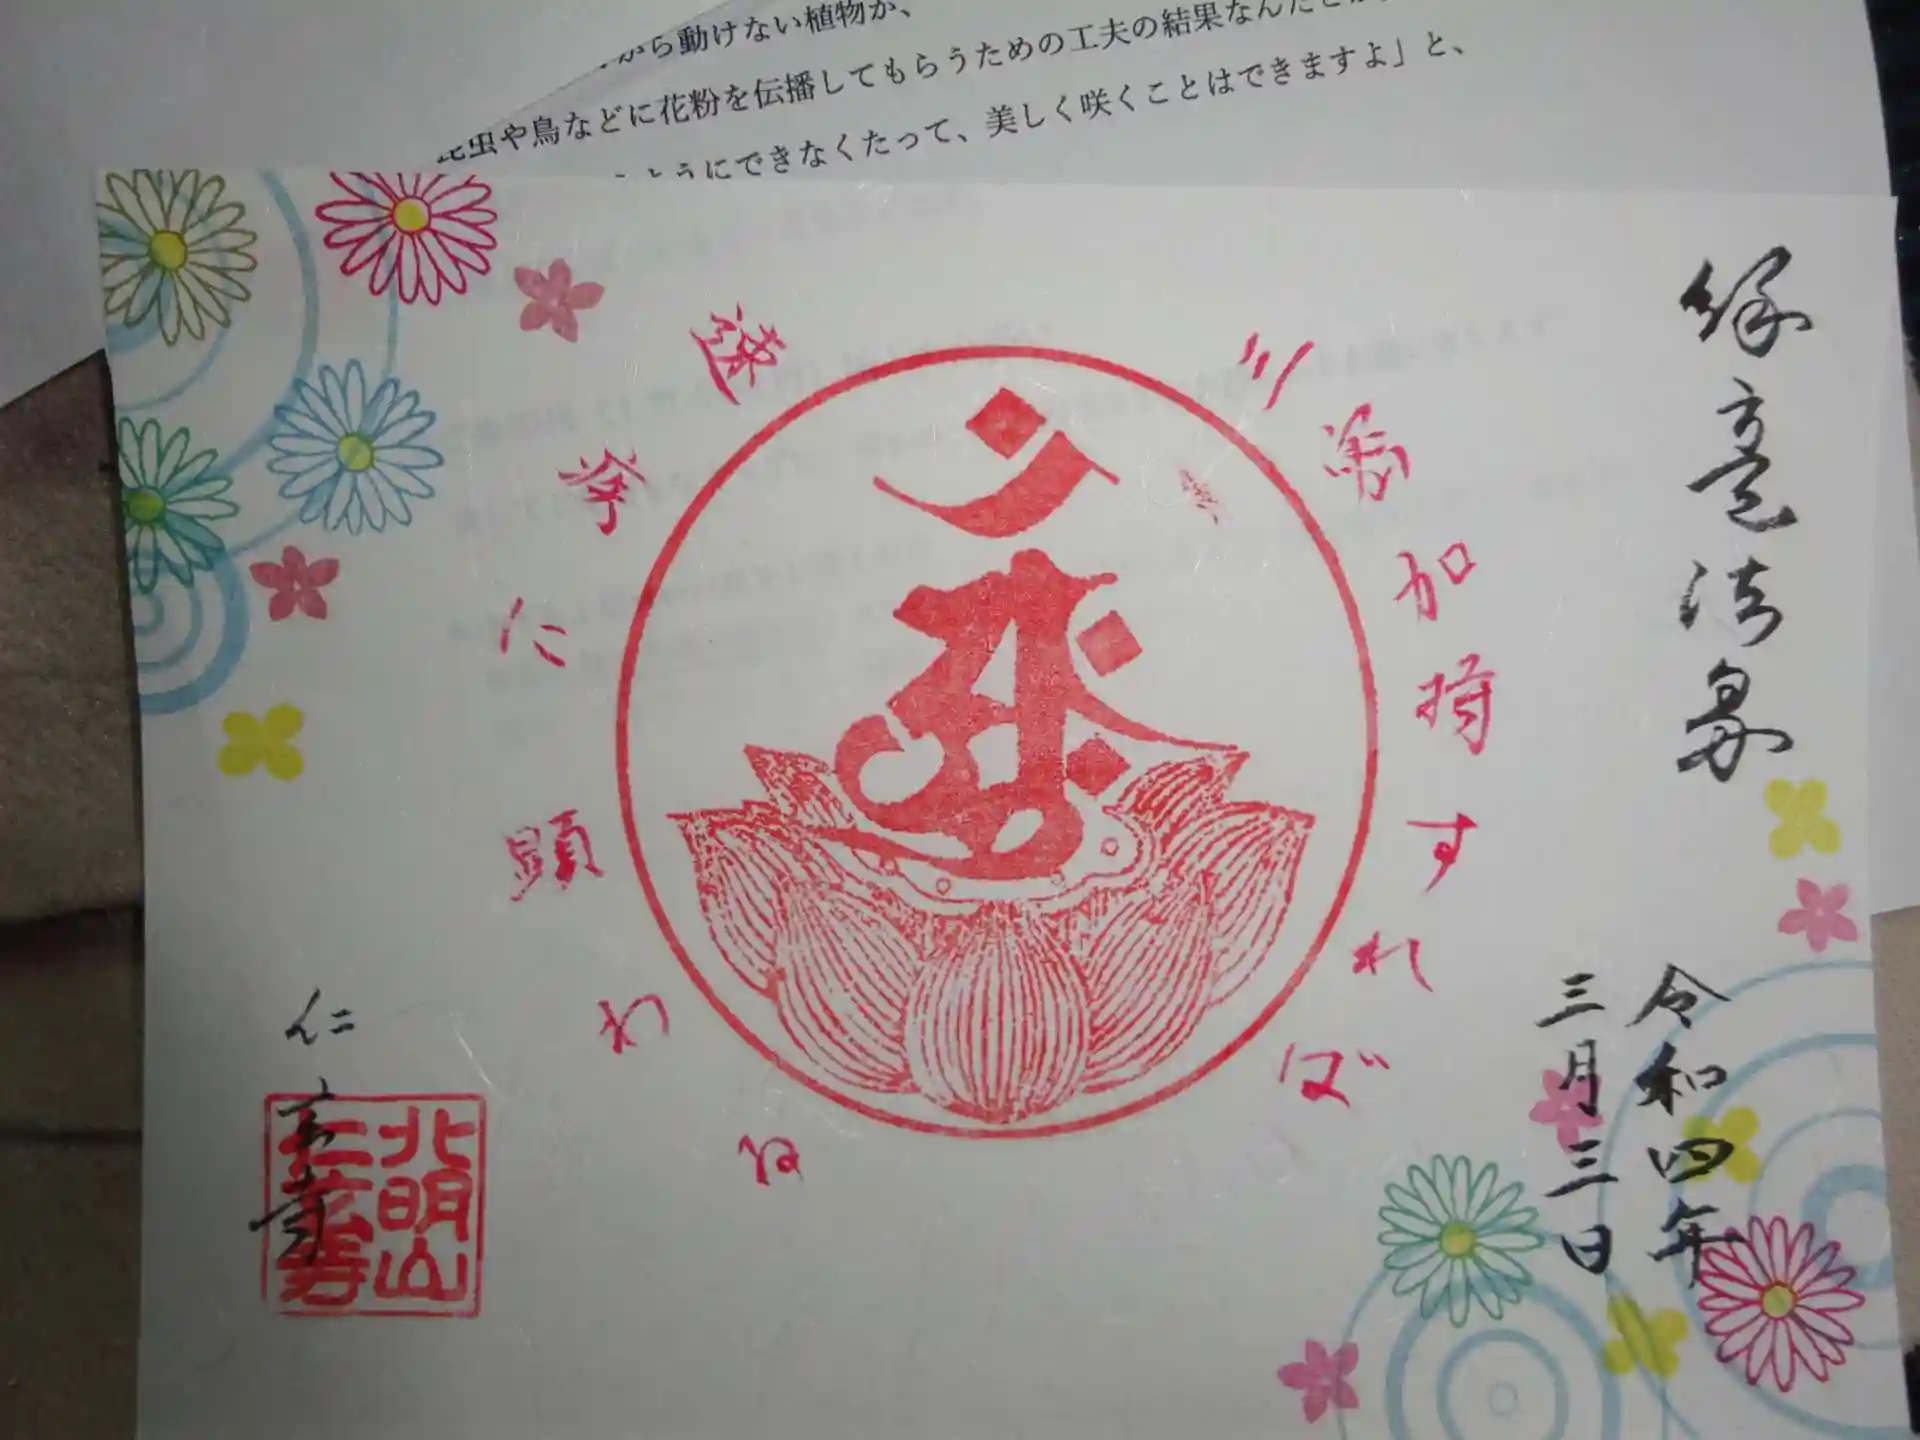 から動けない植物が、
昆虫や鳥などに花粉を伝播してもらうための工夫の結果なんだとか
ようにできなくたって、美しく咲くことはできますよ」と、
令和四年
三月三日
三密加持すれば
速疾に顕わる
北明山